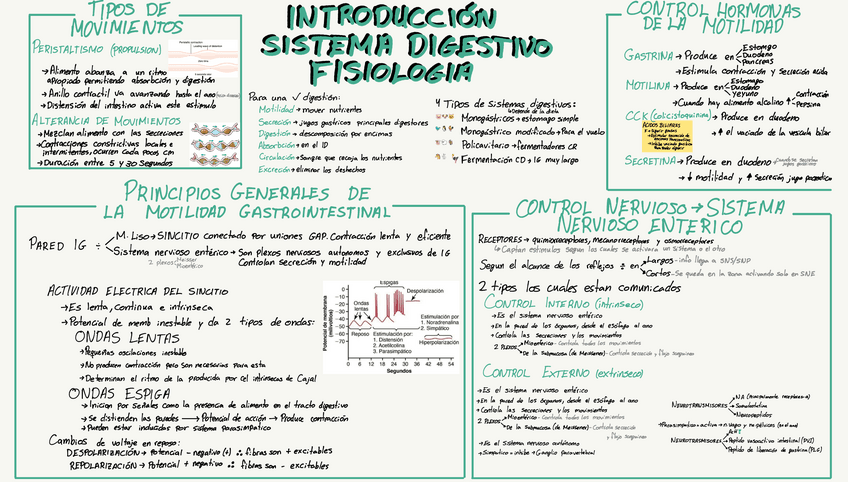 TIPOS DE
MOVIMIENTOS
PERISTALTISMO (PROPULSION)
→Alimento abanza a un ritmo
apropiado permitiendo absorción y digestión
→Anillo contractil va avanzando hasta el ano
→Distensión del intestino activa este estimulo
ALTERANCIA DE MOVIMIENTOS
→Mezclan alimento con las secreciones
→Contracciones constrictivas locales e
intermitentes, ocurren cada pocos cm
→Duración entre 5 y 30 Segundos
INTRODUCCIÓN
SISTEMA DIGESTIVO
FISIOLOGIA
Para una √ digestión:
Motilidad→mover nutrientes
Secreción→jugos gastricos principales digestores
Digestión→descomposición por enzimas
Absorción→en el ID
Circulación→Sangre que recoja los nutrientes
Excreción→eliminar los deshechos
4 Tipos de sistemas digestivos:
→Depende de la dieta
Monogástricos→estomago simple
Monogástrico modificado→Para el vuelo
Policavitario→fermentadores CR
Fermentación CD→IG muy largo
CONTROL HORMONAS
DE LA MOTILIDAD
GASTRINA→Produce en
Estomago
Duodeno
Pancreas
→Estimula contracción y Secreción acida
MOTILINA→Produce en
Estomago
Duodeno
Yeyuno
→Cuando hay alimento alcalino ↑
contracción
Pepsina
CCK (colicistoquinina)→Produce en duodeno
ACIDOS BILIARES
→↑ el vaciado de la vescula biliar
SECRETINA→Produce en duodeno
→↓ motilidad y ↑ Secreción jugo pancreatico
PRINCIPIOS GENERALES DE
LA MOTILIDAD GASTROINTESTINAL
PARED IG ÷
M. Liso→SINCITIO conectado por uniones GAP. Contracción lenta y eficiente
Sistema nervioso entérico→Son plexos nerviosos autonomos y exclusivos de IG
Controlan secreción y motilidad
2 plexos
Meissner
Mioentérico
ACTIVIDAD ELECTRICA DEL SINCITIO
→Es lenta, continua e intrinseca
→Potencial de memb inestable y da 2 tipos de ondas:
ONDAS LENTAS
→Pequeñas oscilaciones inestable
→No producen contracción pero son necesarias para esta
→Determinan el ritmo de la producida por cel intrinsecas de Cajal
ONDAS ESPIGA
→Inician por señales como la presencia de alimento en el tracto digestivo
→Se distienden las paredes → Potencial de acción → Produce contracción
→Pueden estar inducidas por sistema parasimpatico
Cambios de voltaje en reposo:
DESPOLARIZACIÓN→potencial - negativo (+) ∴ fibras son + excitables
REPOLARIZACIÓN→Potencial + negativo ∴ fibras son - excitables
Espigas
Despolarización
Ondas
lentas
Potencial de membrana
(milivoltios)
0
-10
-20
-30
-40
-50
-60
-70
Reposo
Estimulación por:
1. Distensión
2. Acetilcolina
3. Parasimpático
Estimulación por
1. Noradrenalina
2. Simpático
Hiperpolarización
0 6 12 18 24 30 36 42 48 54
Segundos
CONTROL NERVIOSO→SISTEMA
NERVIOSO ENTERICO
RECEPTORES→quimiorreceptores, Mecanorreceptores y osmorreceptores
Captan estimulos segun los cuales se activara un sistema u otro
Segun el alcance de los reflejos ÷ en
Largos-info llega a SNS/SNP
Cortos-Se queda en la zona activando solo en SNE
2 tipos los cuales estan comunicados
CONTROL INTERNO (intrinseco)
→Es el sistema nervioso entérico
→En la pared de los órganos, desde el esófago al ano
→Controla las secreciones y los movimientos
2 PLEXOS
Mioentérico-Controla todos los movimientos
De la Submucosa (de Meissner)-Controla secreción y flujo sanguíneo
CONTROL EXTERNO (extrinseco)
→Es el sistema nervioso entérico
→En la pared de los órganos, desde el esófago al ano
→Controla las secreciones y los movimientos
2 PLEXOS
Mioentérico-Controla todos los movimientos
De la Submucosa (de Meissner)-Controla secreción
y flujo sanguíneo
→Es el Sistema nervioso autónomo
→Simpatico→inhibe→Ganglio paravertebral
NEUROTRANSMISORES
NA
Somatostatina
Neuropéptidos
→Parasimpatico→activa→n. vago y n. pélvicos
NEUROTRASMESORES
Ach
Peptido vasoactivo intestinal
Peptido de liberación de gastrina